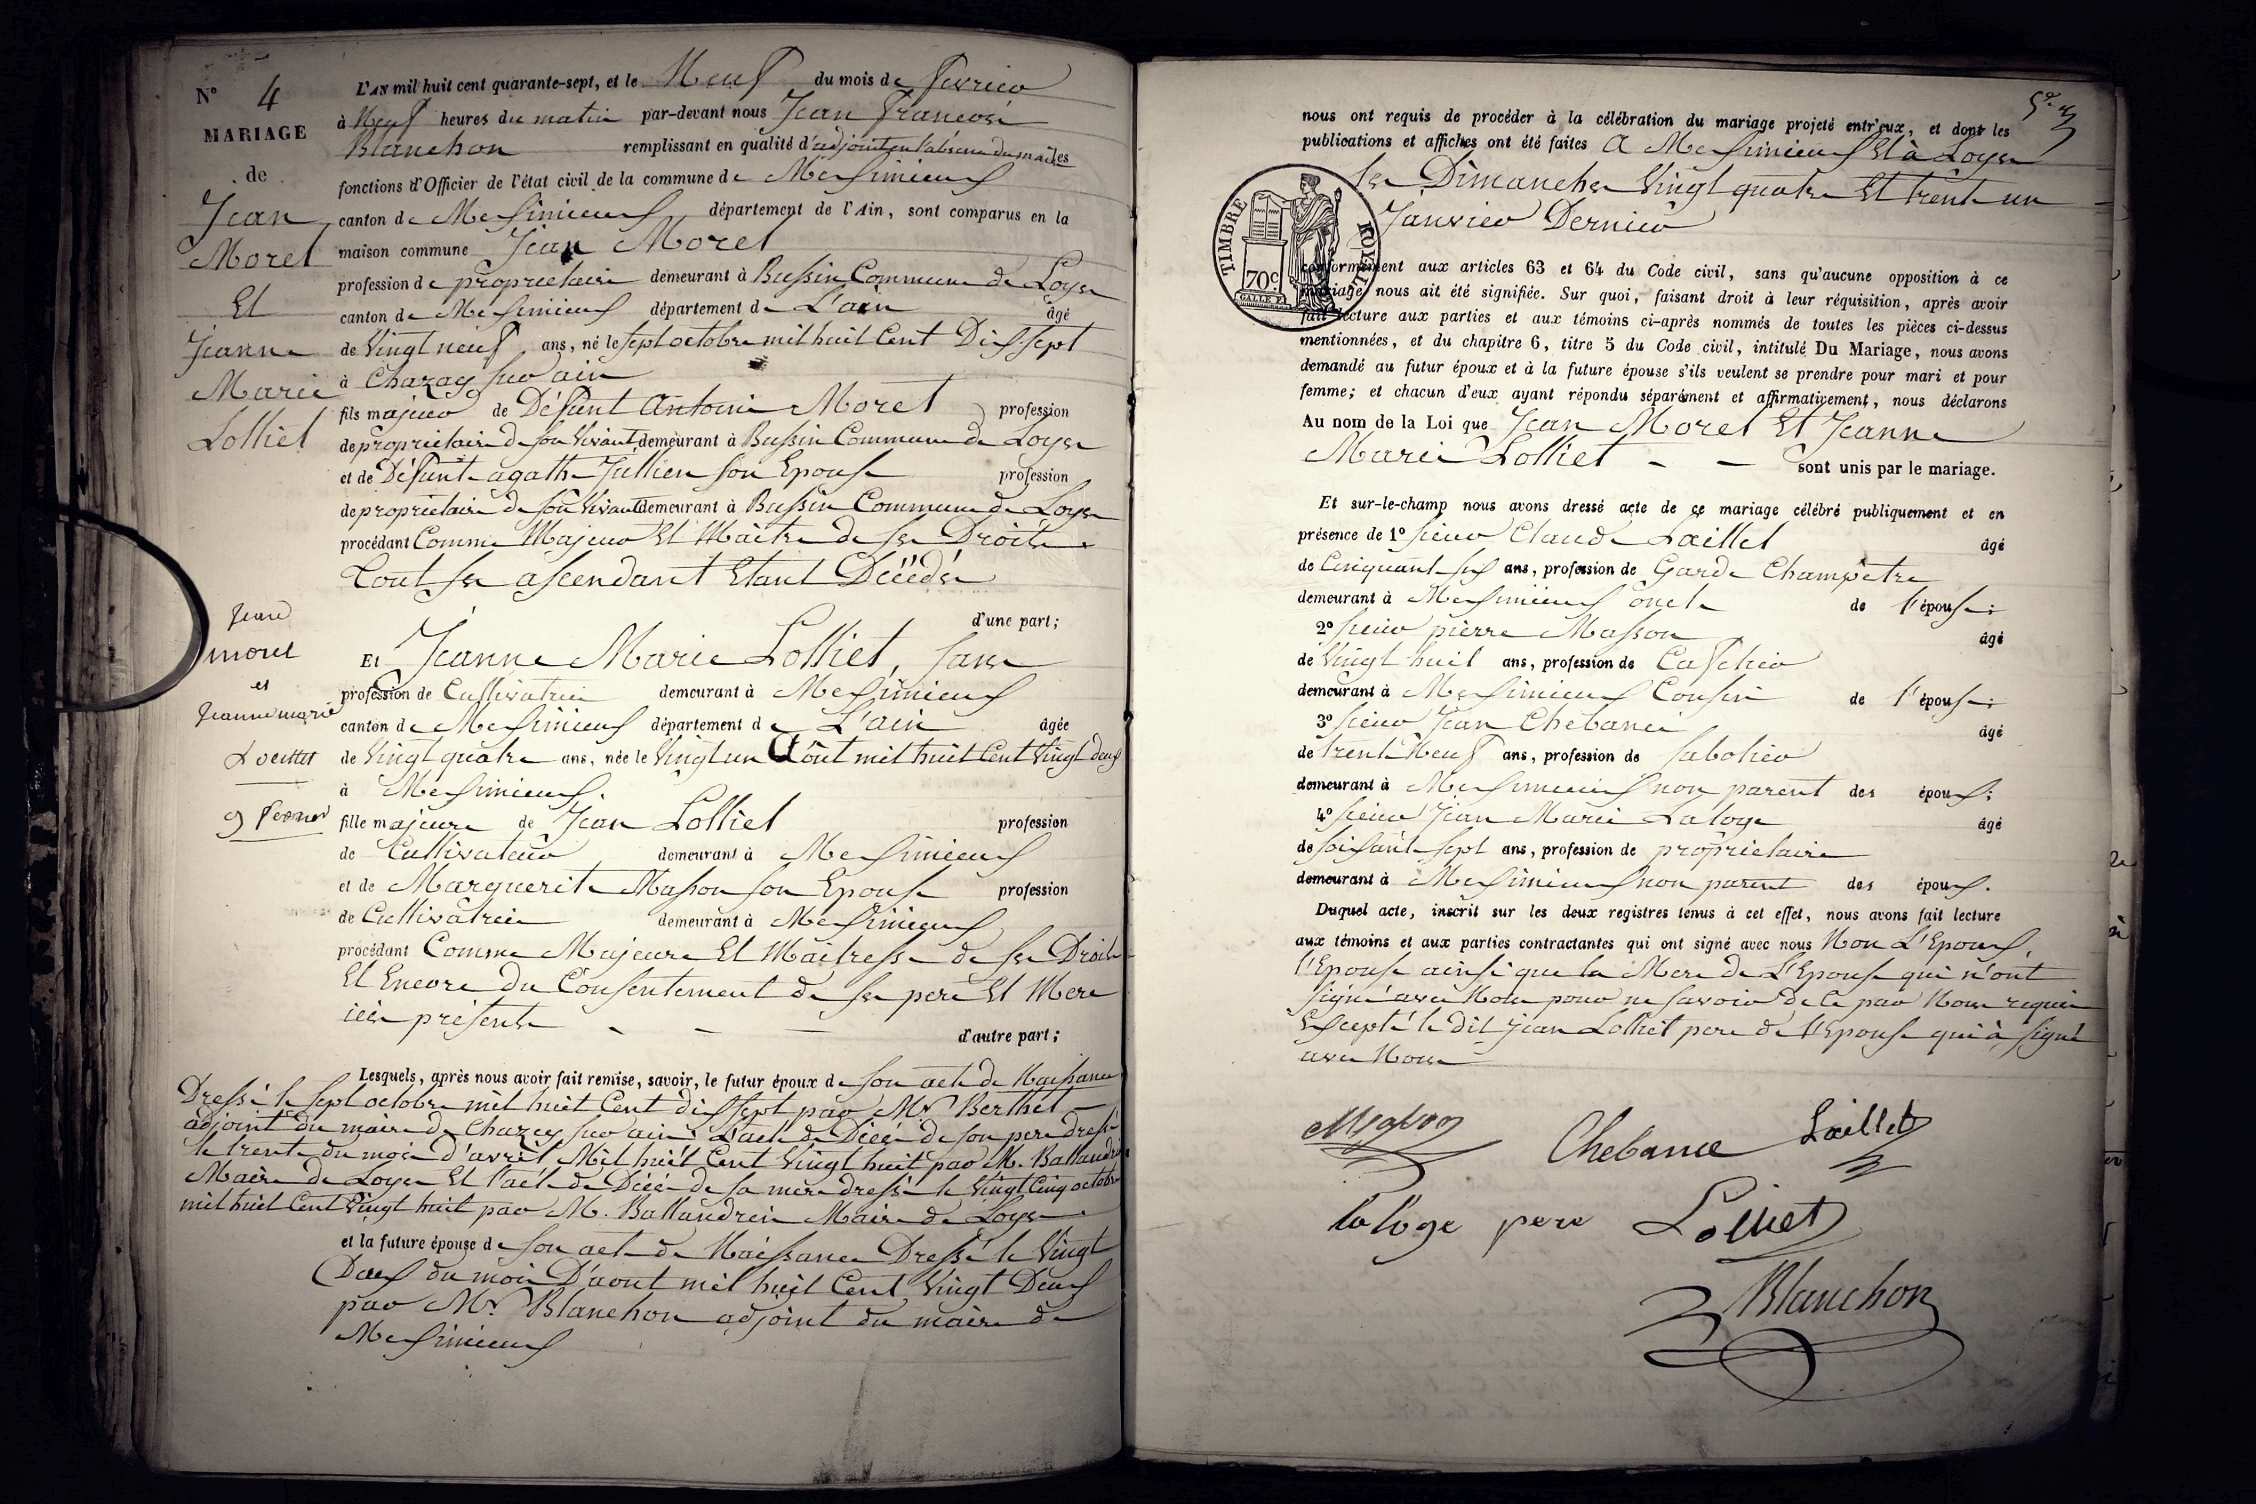 N° 4
MARIAGE
de
Jean
Morel
Et
Jeanne
Marie
Lolliet
Jean
morel
et
Jeanne marie
Loeillet
9 fevrier
L'AN mil huit cent quarante-sept, et le Neuf du mois de fevrier
à Neuf heures du matin par-devant nous Jean françois
Blanchon remplissant en qualité d'adjoint en l'absence du maire les
fonctions d'Officier de l'état civil de la commune de Meximieux
canton de Meximieux département de l'Ain, sont comparus en la
maison commune Jean Morel
profession de propriétaire demeurant à Bussin Commune de Loyes
canton de Meximieux département de L'ain âgé
de Vingt neuf ans, né le sept octobre mil huit Cent Dix sept
à Chazey sur ain
fils majeur de Défunt Antoine Morel profession
de propriétaire de son Vivant demeurant à Bussin Commune de Loyes
et de Défunte agathe Jullien son Epouse profession
de propriétaire de son Vivant demeurant à Bussin Commune de Loyes
procédant Comme Majeur Et Maitre de ses Droits
tout ses ascendant Etant Décédés
d'une part;
Et Jeanne Marie Lolliet, sans
profession de Cultivatrice demeurant à Meximieux
canton de Meximieux département de L'ain âgée
de Vingt quatre ans, née le Vingt un Août mil huit Cent Vingt deux
à Meximieux.
fille majeure de Jean Lolliet profession
de Cultivateur demeurant à Meximieux
et de Marguerite Masson son Epouse profession
de Cultivatrice demeurant à Meximieux
procédant Comme Majeure Et Maitresse de ses Droits
Et Encore du Consentement de ses pere Et Mere
icis présents
d'autre part;
Lesquels, après nous avoir fait remise, savoir, le futur époux de son acte de Naissance
Dressé le sept octobre mil huit Cent dix sept par Mr Berthet
adjoint du maire de Chazey sur ain, L'acte de Décés de son pere dressé
le trente du mois d'avril Mil huit Cent Vingt huit par M. Ballandrin
Maire de Loyes Et l'acte de Décés de sa mère dressé le Vingt Cinq octobre
mil huit Cent Vingt huit par M. Ballandrin Maire de Loyes
et la future épouse de son acte de Naissance Dressé le Vingt
Deux du mois D'aout mil huit Cent Vingt Deux
par Mr Blanchon adjoint du maire de
Meximieux
nous ont requis de procéder à la célébration du mariage projeté entr'eux, et dont les
publications et affiches ont été faites A Meximieux Et à Loyes
les Dimanches Vingt quatre Et trente un
Janvier Dernier
TIMBRE ROYAL
70c
conformément aux articles 63 et 64 du Code civil, sans qu'aucune opposition à ce
mariage nous ait été signifiée. Sur quoi, faisant droit à leur réquisition, après avoir
fait lecture aux parties et aux témoins ci-après nommés de toutes les pièces ci-dessus
mentionnées, et du chapitre 6, titre 5 du Code civil, intitulé Du Mariage, nous avons
demandé au futur époux et à la future épouse s'ils veulent se prendre pour mari et pour
femme; et chacun d'eux ayant répondu séparément et affirmativement, nous déclarons
Au nom de la Loi que Jean Morel Et Jeanne
Marie Lolliet sont unis par le mariage.
Et sur-le-champ nous avons dressé acte de ce mariage célébré publiquement et en
présence de 1° sieur Claude Laillet âgé
de Cinquante six ans, profession de Garde Champêtre
demeurant à Meximieux oncle de l'épouse:
2° sieur pierre Masson âgé
de Vingt huit ans, profession de Caffetier
demeurant à Meximieux Cousin de l'épouse:
3° sieur Jean Chebance âgé
de trente Neuf ans, profession de sabotier
demeurant à Meximieux non parent des époux:
4° sieur Jean Marie Laloge âgé
de soixante sept ans, profession de propriétaire
demeurant à Meximieux non parent des époux.
Duquel acte, inscrit sur les deux registres tenus à cet effet, nous avons fait lecture
aux témoins et aux parties contractantes qui ont signé avec nous Non L'Epoux,
l'Epouse ainsi que la Mere de L'Epouse qui n'ont
signé avec Nous pour ne savoir de ce par Nous requis
Excepté le dit Jean Lolliet pere de l'Epouse qui à signé
avec Nous
Masson
Chebance
Laillet
laloge pere
Lolliet
Blanchon